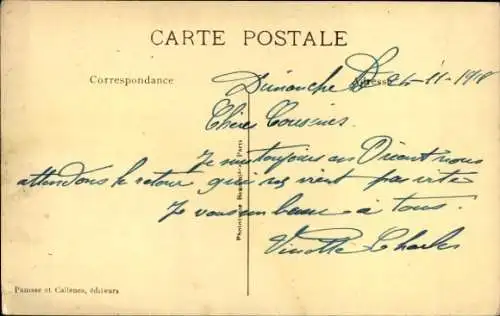 CARTE POSTALE
Correspondance
Adresse
Dimanche 24-11-1918
Chères Cousines.
Je suis toujours au nous
attendons le retour qui ne vient pas vite
Je vous embrasse à tous.
Charles
Pannese et Callence, éditeurs